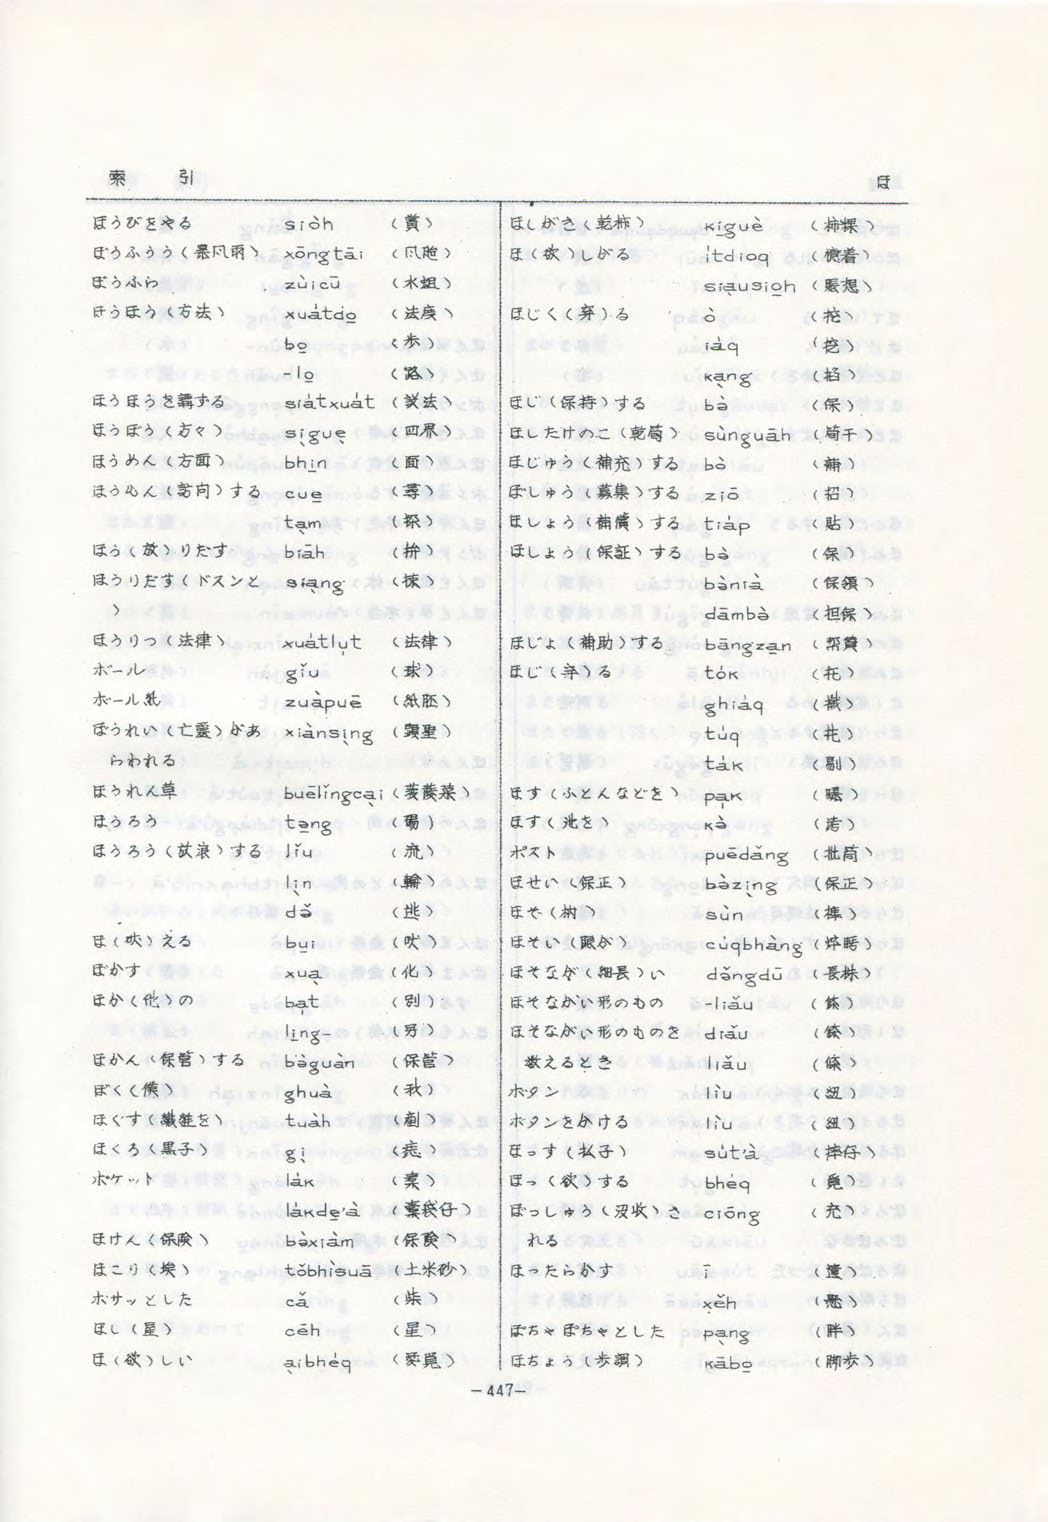 索 引 ほ
ほうびをやる siȯh (賞)
ぼうふうう (暴風雨) xōngtāi (風颱)
ぼうふら zùicū (水蛆)
ほうほう (方法) xuȧtdo̲ (法度)
bo̲ (步)
-lo̲ (路)
ほうほうを講ずる siȧtxuȧt (説法)
ほうぼう (方々) si̖gue̖ (四界)
ほうめん (方面) bhi̲n (面)
ほうもん (訪問) する cue̲ (尋)
ta̖m (探)
ほう (放) りだす biāh (拚)
ほうりだす (ドスンと sia̖ng (㨂)
)
ほうりつ (法律) xuȧtlu̖t (法律)
ボール gǐu (球)
ボール紙 zuàpuē (紙胚)
ぼうれい (亡霊) があ xiànsi̖ng (顕聖)
らわれる
ほうれん草 buēlǐngca̖i (菠薐菜)
ほうろう ta̲ng (璗)
ほうろう (放浪) する lǐu (流)
li̖n (輪)
dǒ (逃)
ほ (吠) える bu̲i (吠)
ぼかす xua̖ (化)
ほか (他) の ba̖t (別)
li̲ng- (另)
ほかん (保管) する bə̀guàn (保管)
ぼく (僕) ghuà (我)
ほぐす (縫針を) tuàh (剷)
ほくろ (黒子) gi̖ (痣)
ポケット lȧk (橐)
lȧkde̲'à (橐袋仔)
ほけん (保険) bə̀xiàm (保険)
ほこり (埃) tǒbhìsuā (土米砂)
ボサッとした cǎ (柴)
ほし (星) cēh (星)
ほ (欲) しい a̖ibhėq (愛覓)
ほしがき (乾柿) ki̲guè (柿粿)
ほ (欲) しがる i̇tdioq (憶着)
sia̖usio̲h (數想)
ほじく (穿) る ò (挖)
iȧq (挖)
ka̖ng (掐)
ほじ (保持) する bə̀ (保)
ほしたけのこ (乾筍) sùnguāh (筍干)
ほじゅう (補充) する bò (補)
ぼしゅう (募集) する ziō (招)
ほしょう (補償) する tiȧp (貼)
ほしょう (保証) する bə̀ (保)
bə̀nià (保領)
dāmbə̀ (担保)
ほじょ (補助) する bāngza̲n (幇賛)
ほじ (穿) る tȯk (托)
ghiȧq
tu̇q
tȧk (剔)
ほす (ふとんなどを) pa̖k (曝)
ほす (池を) kə̀ (洘)
ポスト puēdǎng (批筒)
ほせい (保正) bə̀zi̖ng (保正)
ほぞ (枘) sùn (榫)
ほそい (眼が) cu̇qbhàng
ほそなが (細長) い də̌ngdū (長株)
ほそながい形のもの -liǎu (條)
ほそながい形のものを diǎu (條)
数えるとき liǎu (條)
ボタン lìu (紐)
ボタンをかける lìu (紐)
ほっす (払子) su̇t'à (捽仔)
ほっ (欲) する bhėq (覓)
ぼっしゅう (没収) さ ciōng (充)
れる
ほったらかす ī (遺)
xe̖h
ぽちゃぽちゃとした pa̖ng (胖)
ほちょう (歩調) kābo̲ (脚步)
-447-